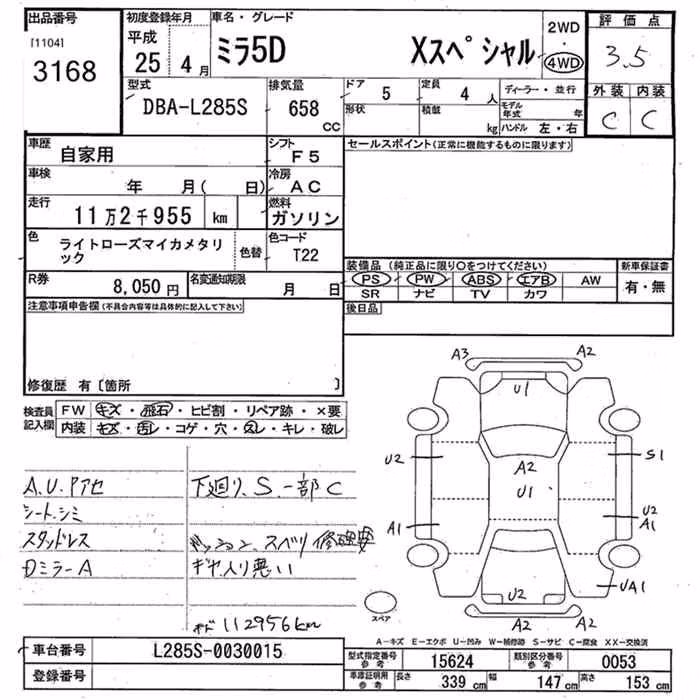 出品番号
[1104]
3168
初度登録年月
平成
25年 4月
車名・グレード
ミラ5D Xスペシャル
2WD
・
4WD
評価点
3.5
外装 内装
C C
型式
DBA-L285S
排気量
658
CC
ドア 5
形状
定員 4 人
積載 kg
ディーラー・並行
モデル年式 年
ハンドル 左・右
車歴
自家用
シフト
F5
車検
年 月( 日)
冷房
AC
走行
11万2千955 km
燃料
ガソリン
色
ライトローズマイカメタリック
色替
色コード
T22
R券
8,050 円
名変通知期限
月 日
セールスポイント(正常に機能するものに限ります)
装備品 (純正品に限り○をつけてください)
PS PW ABS エアB AW
SR ナビ TV カワ
新車保証書
有・無
注意事項申告欄(不具合内容等は具体的に記入して下さい)
後日品
修復歴 有〔箇所 〕
検査員
記入欄
FW キズ・飛石・ヒビ割・リペア跡・×要
内装 キズ・汚レ・コゲ・穴・スレ・キレ・破レ
A.U.Pアセ
シート.シミ
スタッドレス
Dミラー A
下廻り.S.一部C
スベリ
ギヤ入り悪い
112956km
A3 A2
U1
U2 A2 S1
U1
A1 U2
A1
U2 UA1
A2 A2
スペア
A-キズ E-エクボ U-凹み W-補修跡 S-サビ C-腐食 XX-交換済
車台番号 L285S-0030015
登録番号
型式指定番号
参考
15624
類別区分番号
参考
0053
車庫証明用
参考
長さ 339 cm 幅 147 cm 高さ 153 cm